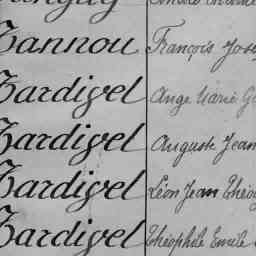 Tannou François Jose
Tardivel Ange Marie
Tardivel Auguste Jean
Tardivel Léon Jean Théo
Tardivel Théophile Emile